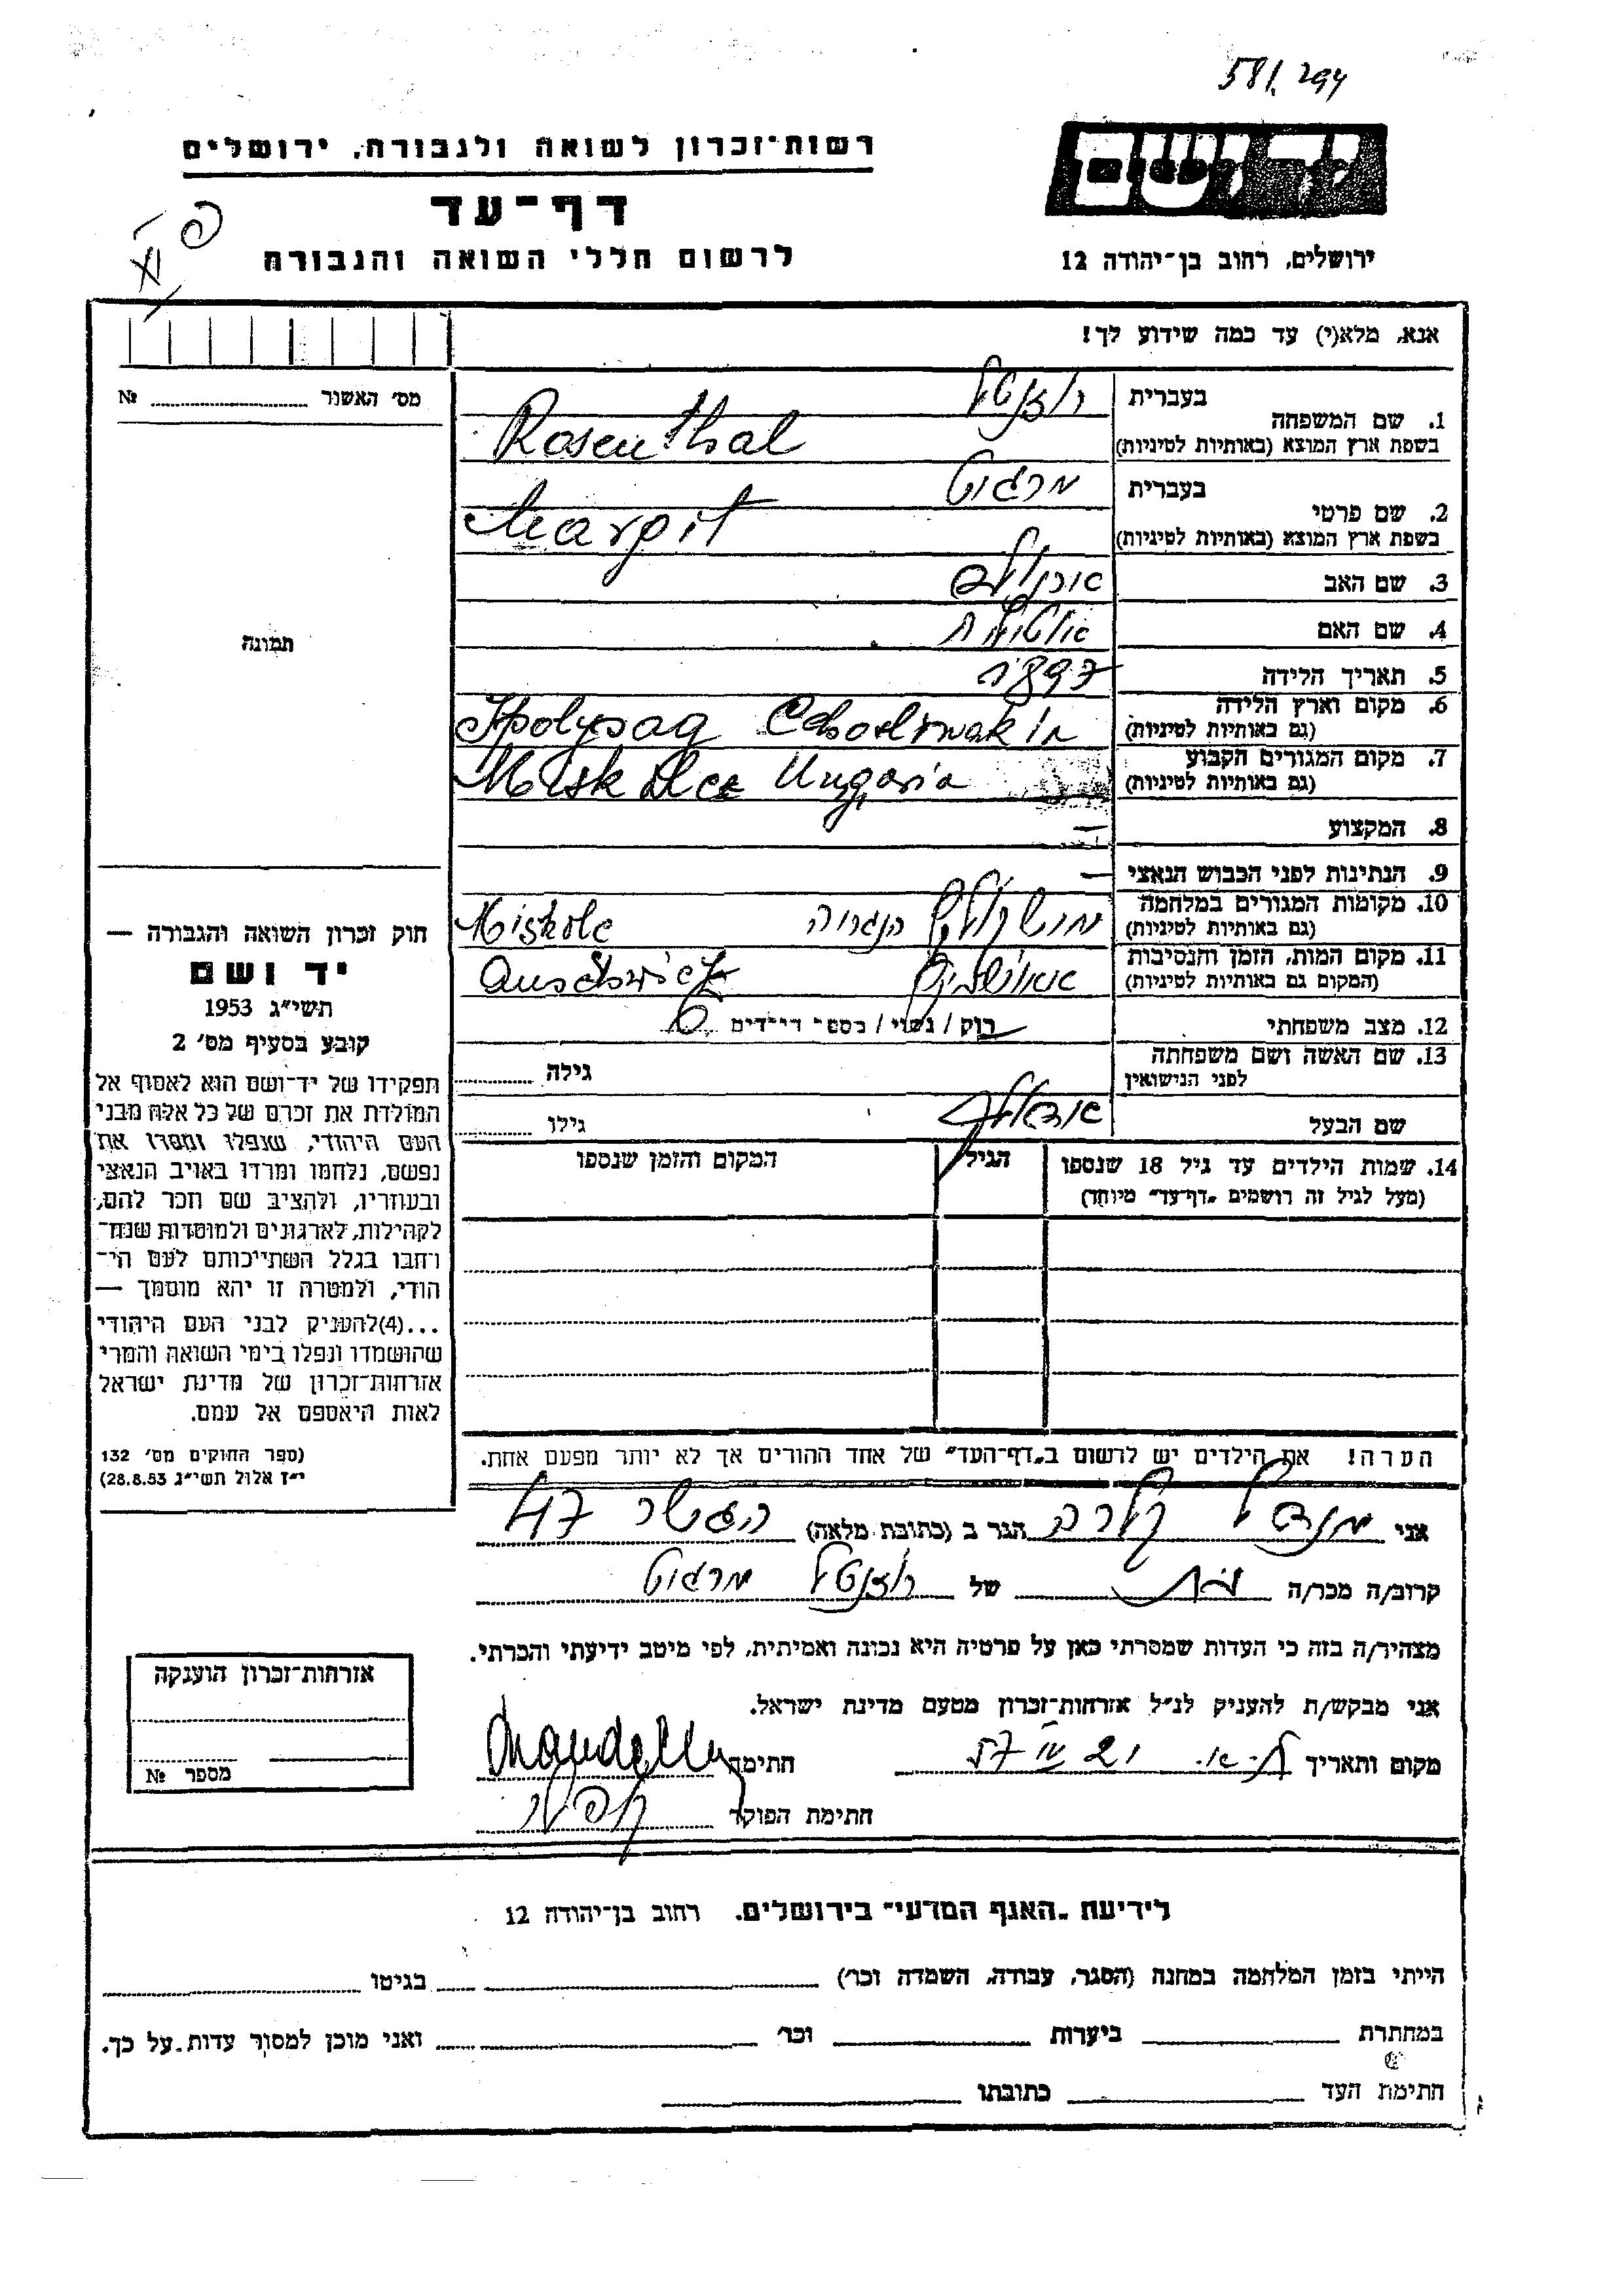 58/294
רשות־זכרון לשואה ולגבורה, ירושלים
יד ושם
דף־עד
לרשום חללי השואה והגבורה
ירושלים, רחוב בן־יהודה 12
אנא, מלא(י) עד כמה שידוע לך!
מס' האשור № 
בעברית רוזנטל
1. שם המשפחה
בשפת ארץ המוצא (באותיות לטיניות) Rosenthal
בעברית מרגיט
2. שם פרטי
בשפת ארץ המוצא (באותיות לטיניות) Margit
3. שם האב
4. שם האם
5. תאריך הלידה 1897
6. מקום וארץ הלידה
(גם באותיות לטיניות) Ipolysag
7. מקום המגורים הקבוע
(גם באותיות לטיניות) Ungaria
8. המקצוע —
9. הנתינות לפני הכבוש הנאצי —
10. מקומות המגורים במלחמה
(גם באותיות לטיניות) מישקולץ הנגריה Miskolc
11. מקום המות, הזמן והנסיבות
(המקום גם באותיות לטיניות) אאושוויץ
12. מצב משפחתי רוק / נשוי / מספר הילדים 6
13. שם האשה ושם משפחתה
לפני הנישואין גילה
שם הבעל גילו
14. שמות הילדים עד גיל 18 שנספו הגיל המקום והזמן שנספו
(מעל לגיל זה רושמים "דף־עד" מיוחד)
הערה! את הילדים יש לרשום ב"דף־העד" של אחד ההורים אך לא יותר מפעם אחת.
תמונה
חוק זכרון השואה והגבורה —
יד ושם
תשי"ג 1953
קובע בסעיף מס' 2
תפקידו של יד־ושם הוא לאסוף אל
המולדת את זכרם של כל אלה מבני
העם היהודי, שנפלו ומסרו את
נפשם, נלחמו ומרדו באויב הנאצי
ובעוזריו, ולהציב שם וזכר להם,
לקהילות, לארגונים ולמוסדות שנח־
רבו בגלל השתייכותם לעם הי־
הודי, ולמטרה זו יהא מוסמך —
...(4)להעניק לבני העם היהודי
שהושמדו ונפלו בימי השואה והמרי
אזרחות־זכרון של מדינת ישראל
לאות היאספם אל עמם.
(ספר החוקים מס' 132
י"ז אלול תשי"ג 28.8.53)
אני מנדל קלרה הגר ב (כתובת מלאה) הגשר 47
קרוב/ה מכר/ה בת של רוזנטל מרגיט
מצהיר/ה בזה כי העדות שמסרתי כאן על פרטיה היא נכונה ואמיתית, לפי מיטב ידיעתי והכרתי.
אני מבקש/ת להעניק לנ"ל אזרחות־זכרון מטעם מדינת ישראל.
מקום ותאריך ת־א. 21 57 חתימה
חתימת הפוקד
אזרחות־זכרון הוענקה
מספר №
לידיעת "האגף המדעי" בירושלים, רחוב בן־יהודה 12
הייתי בזמן המלחמה במחנה (הסגר, עבודה, השמדה וכו') בגיטו
במחתרת ביערות וכו' ואני מוכן למסור עדות על כך.
חתימת העד כתובתו